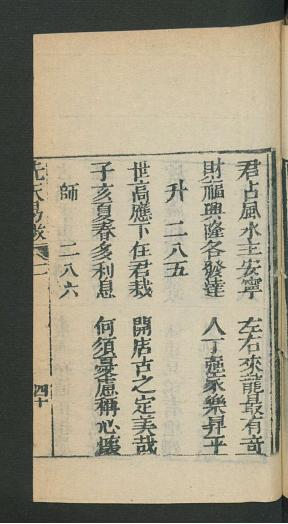 君占風水主安寧　左右來龍最有奇
財福興隆各發達　人丁壺家樂昇平
升　二八五
世高應下任君裁　開店占之定美哉
子亥夏春多利息　何須憂慮稱心懷
師　二八六
先天易數　二　四十